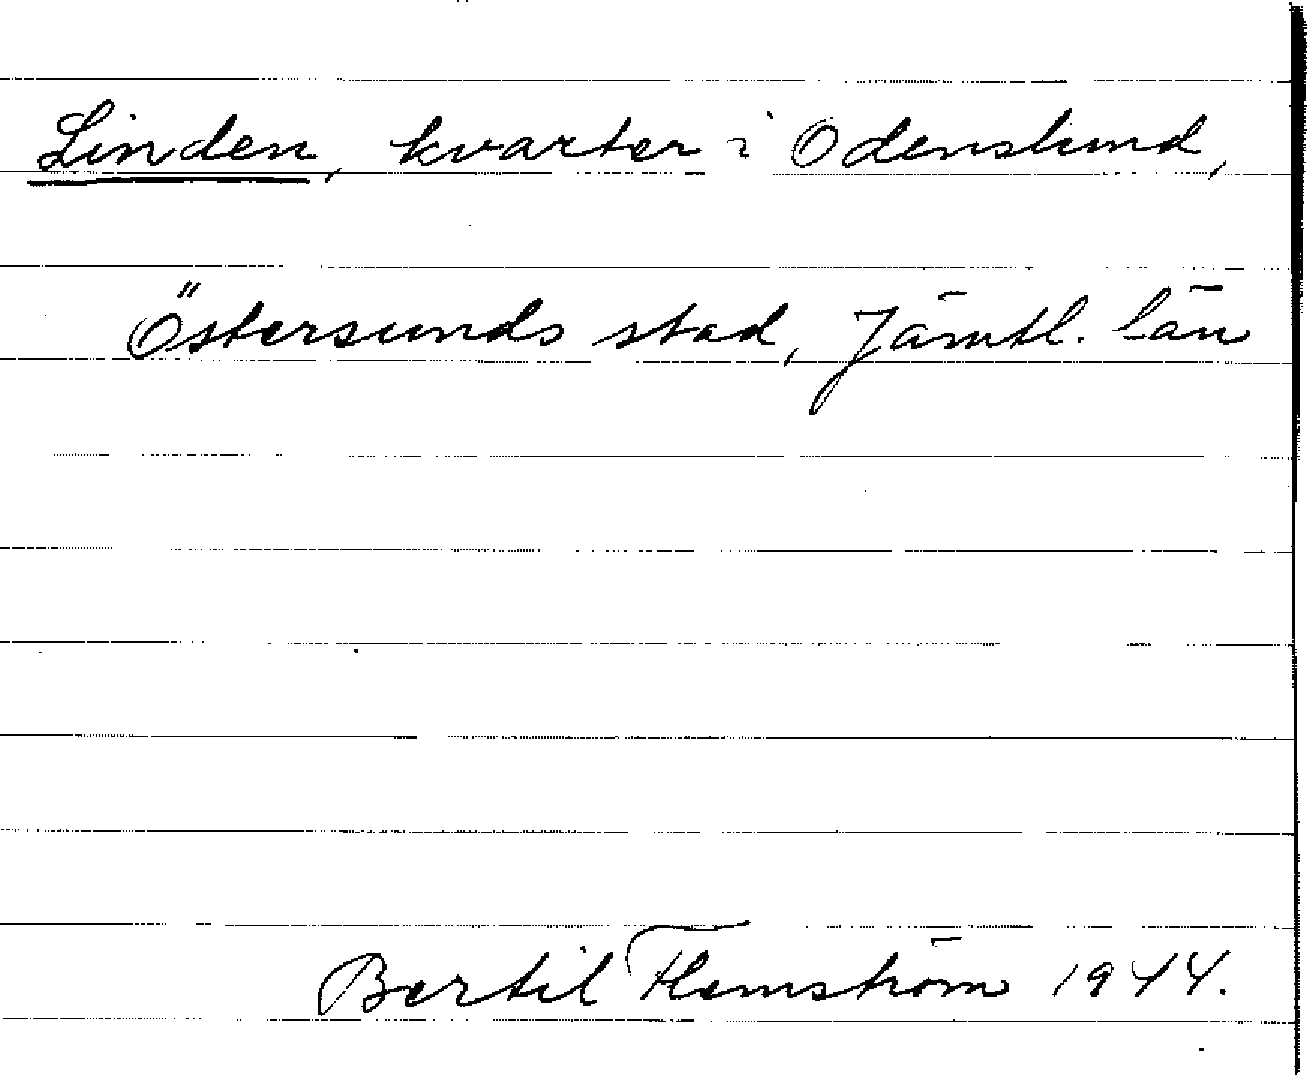 Linden, kvarter i Odenslund,
Östersunds stad, Jämtl. län
Bertil Flemström 1944.